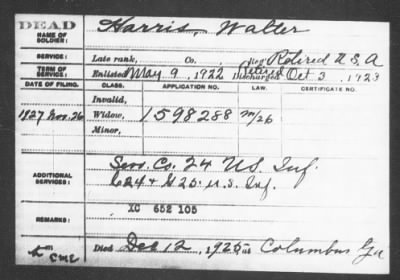 DEAD
NAME OF SOLDIER: Harris, Walter
SERVICE: Late rank, Co. Reg't Retired U.S.A
TERM OF SERVICE: Enlisted May 9, 1922 Discharged Oct 3, 1923
DATE OF FILING. CLASS. APPLICATION NO. LAW. CERTIFICATE NO.
Invalid,
1927 Nov. 26 Widow, 1598288 m/26
Minor,
ADDITIONAL SERVICES: Serv. Co. 24 U.S. Inf.
C 24 & G 25. U.S. Inf.
XC 652 105
REMARKS:
Died Dec 12, 1925 at Columbus Ga